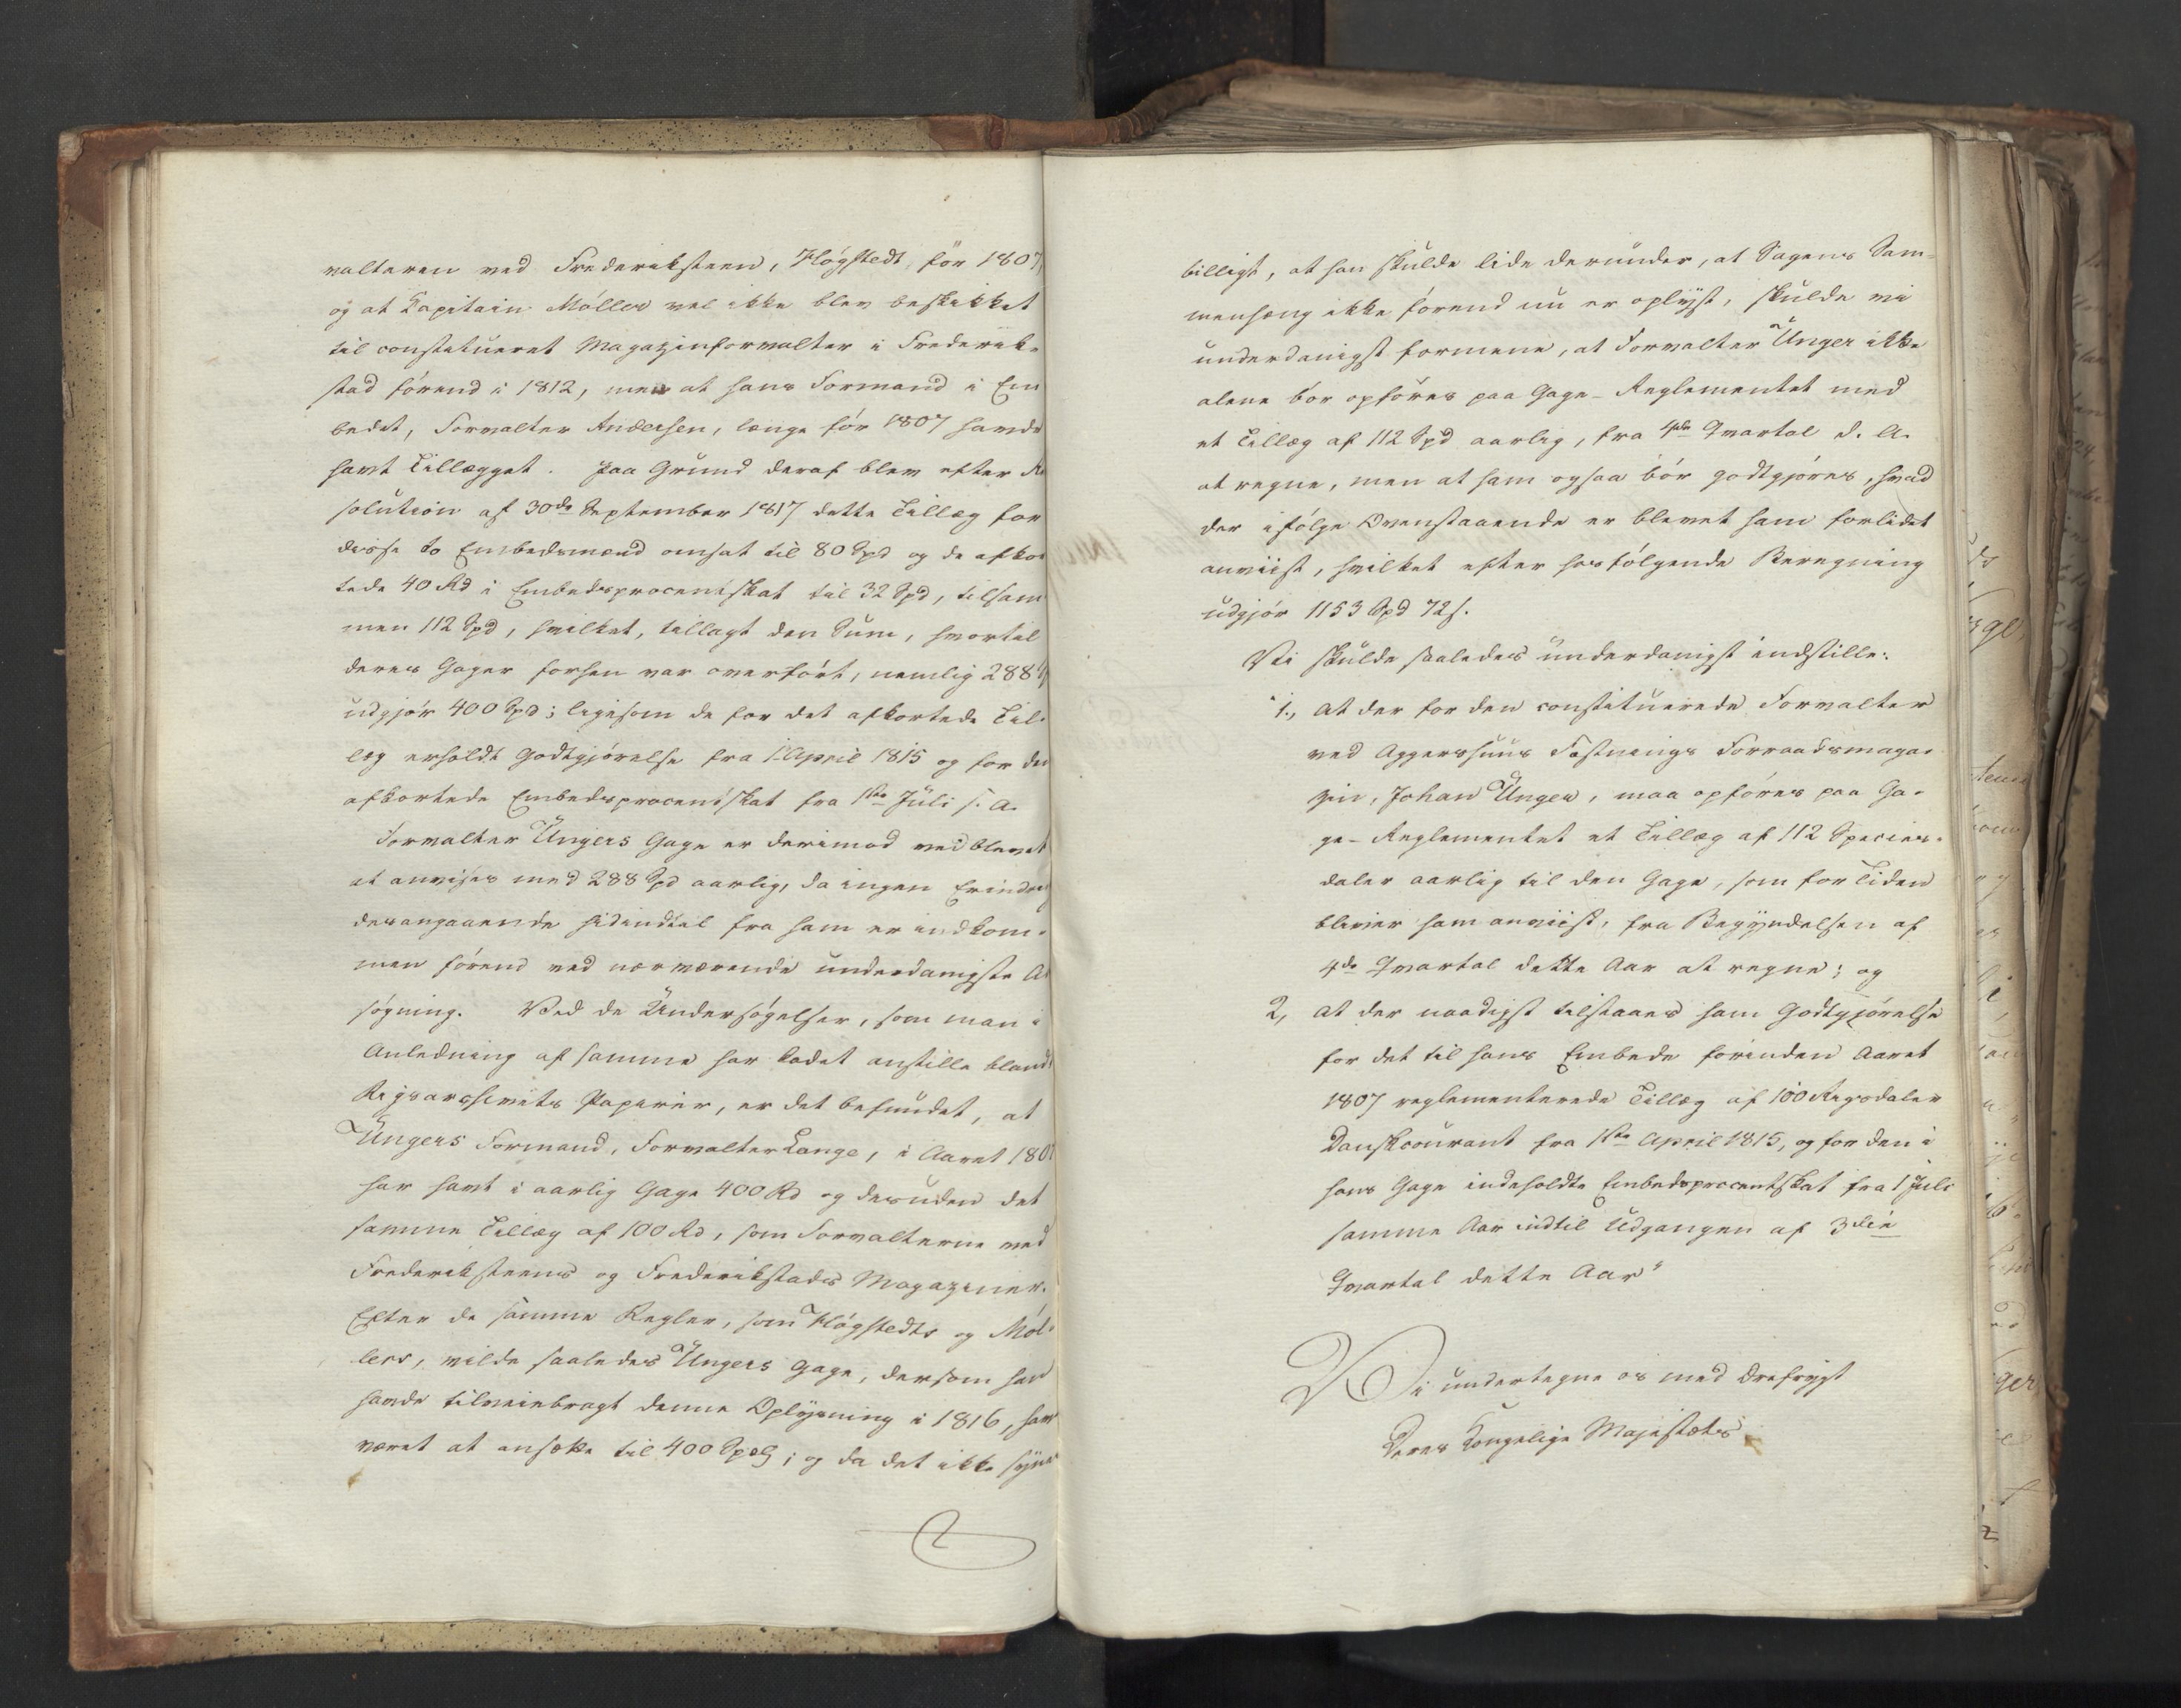 valteren ved Frederiksteen, Høgstedt, før 1807,
og at Kapitain Møller vel ikke blev beskikket
til constitueret Magazinforvalter i Frederik-
stad førend i 1812, men at hans Formand i Em
bedet, Forvalter Andersen, længe før 1807 havde
havt Tillægget. Paa Grund deraf blev efter Re
solution af 30de September 1817 dette Tillæg for
disse to Embedsmænd omsat til 80 Spd og de afkor
tede 40 Rd i Embedsprocentskat til 32 Spd, tilsam
men 112 Spd, hvilket, tillagt den Sum, hvortil
deres Gager forhen var overført, nemlig 288
udgjør 400 Spd; ligesom de for det afkortede Til-
læg erholdt Godtgjørelse fra 1 April 1815 og for den
afkortede Embedsprocentskat fra 1ste Juli s. A.
Forvalter Ungers Gage er derimod vedblevet
at anvises med 288 Spd aarlig, da ingen Erindring
desangaaende hidindtil fra ham er indkom-
men førend ved nærværende underdanigste An
søgning. Ved de Undersøgelser, som man i
Anledning af samme har ladet anstille blandt
Rigsarchivets Papirer, er det befundet, at
Ungers Formand, Forvalter Lange, i Aaret 1801
har havt i aarlig Gage 400 Rd og desuden det
samme Tillæg af 100 Rd, som Forvalterne ved
Frederiksteens og Frederikstads Magaziner.
Efter de samme Regler, som Høgstedts og Møl-
lers, vilde saaledes Ungers Gage, dersom han
havde tilveiebragt denne Oplysning i 1816, have
været at ansætte til 400 Spd; og da det ikke synes
billigt, at han skulde lide derunder, at Sagens Sam-
menhæng ikke førend nu er oplyst, skulde vi
underdanigst formene, at Forvalter Unger ikke
alene bør opføres paa Gage-Reglementet med
et Tillæg af 112 Spd aarlig, fra 4de Qvartal d. A.
at regne, men at ham ogsaa bør godtgjøres, hvad
der ifølge Ovenstaaende er blevet ham forlidet
anviist, hvilket efter hosfølgende Beregning
udgjør 1153 Spd 72 s.
Vi skulde saaledes underdanigst indstille:
"1., At der for den constituerede Forvalter
ved Aggershuus Fæstnings Forraadsmaga-
zin, Johan Unger, maa opføres paa Ga-
ge-Reglementet et Tillæg af 112 Species-
daler aarlig til den Gage, som for Tiden
bliver ham anviist, fra Begyndelsen af
4de Qvartal dette Aar at regne; og
2, At der naadigst tilstaaes ham Godtgjørelse
for det til hans Embede forinden Aaret
1807 reglementerede Tillæg af 100 Rigsdaler
Danskcourant fra 1ste April 1815, og for den i
hans Gage indeholdte Embedsprocentskat fra 1 Juli
samme Aar indtil Udgangen af 3die
Qvartal dette Aar"
Vi undertegne os med Ærefrygt
Deres Kongelige Majestæts